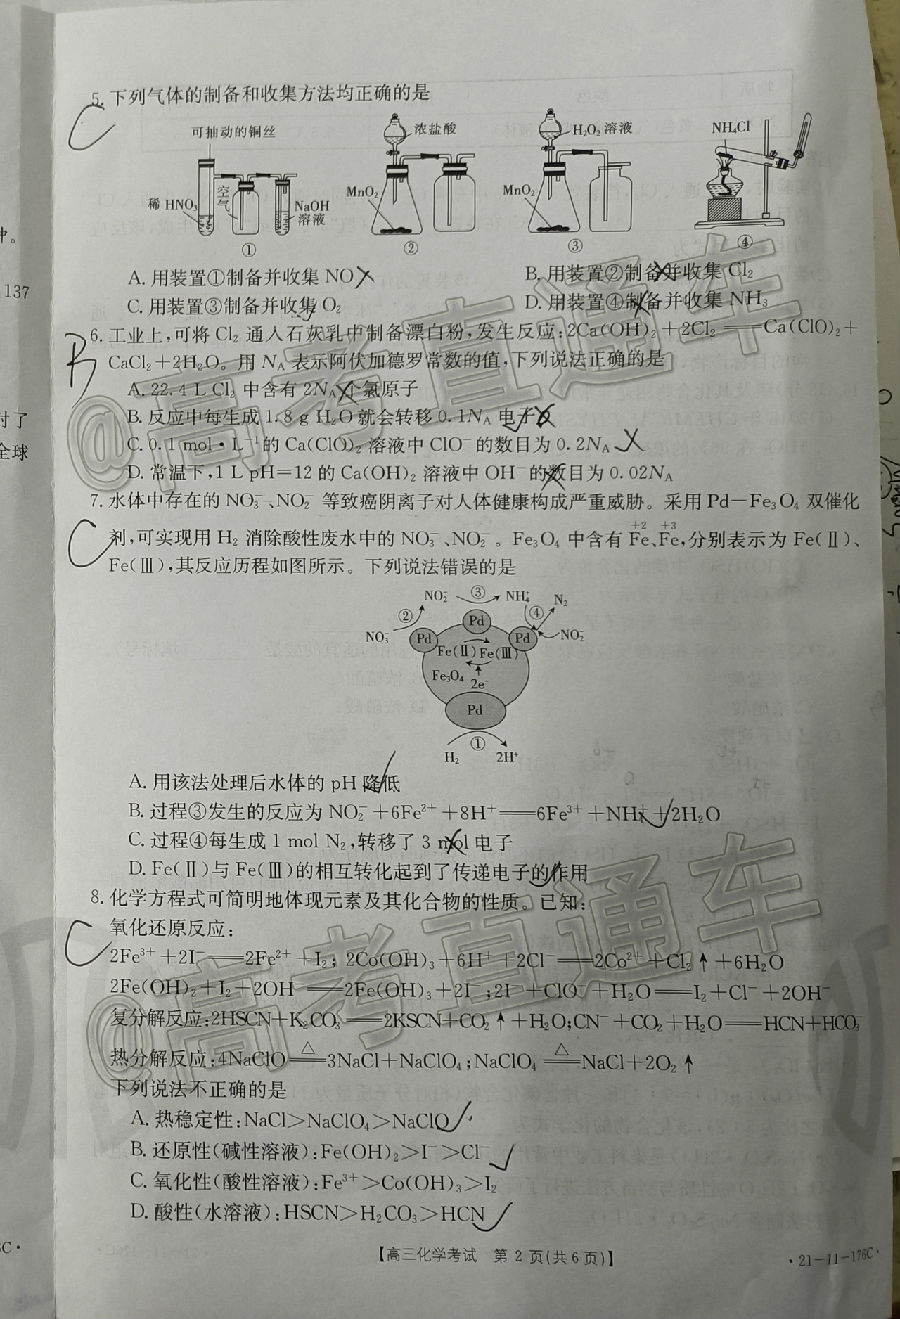 5. 下列气体的制备和收集方法均正确的是
C
可抽动的铜丝
稀 HNO₃
空气
NaOH 溶液
①
浓盐酸
MnO₂
②
H₂O₂ 溶液
MnO₂
③
NH₄Cl
④
A. 用装置①制备并收集 NO
B. 用装置②制备并收集 Cl₂
C. 用装置③制备并收集 O₂
D. 用装置④制备并收集 NH₃
6. 工业上,可将 Cl₂ 通入石灰乳中制备漂白粉,发生反应:2Ca(OH)₂+2Cl₂══Ca(ClO)₂+
B
CaCl₂+2H₂O。用 N_A 表示阿伏加德罗常数的值,下列说法正确的是
A. 22.4 L Cl₂ 中含有 2N_A 个氯原子
B. 反应中每生成 1.8 g H₂O 就会转移 0.1N_A 电子
C. 0.1 mol·L⁻¹的 Ca(ClO)₂ 溶液中 ClO⁻的数目为 0.2N_A
D. 常温下,1 L pH=12 的 Ca(OH)₂ 溶液中 OH⁻的数目为 0.02N_A
7. 水体中存在的 NO₃⁻、NO₂⁻ 等致癌阴离子对人体健康构成严重威胁。采用 Pd—Fe₃O₄ 双催化
C
剂,可实现用 H₂ 消除酸性废水中的 NO₃⁻、NO₂⁻。Fe₃O₄ 中含有 +2Fe、+3Fe,分别表示为 Fe(Ⅱ)、
Fe(Ⅲ),其反应历程如图所示。下列说法错误的是
NO₂⁻ ③ NH₄⁺ N₂
② ④
NO₃⁻ Pd Pd Pd NO₂⁻
Fe(Ⅱ) Fe(Ⅲ)
Fe₃O₄ 2e⁻
Pd
①
H₂ 2H⁺
A. 用该法处理后水体的 pH 降低
B. 过程③发生的反应为 NO₂⁻+6Fe²⁺+8H⁺══6Fe³⁺+NH₄⁺+2H₂O
C. 过程④每生成 1 mol N₂,转移了 3 mol 电子
D. Fe(Ⅱ)与 Fe(Ⅲ)的相互转化起到了传递电子的作用
8. 化学方程式可简明地体现元素及其化合物的性质。已知:
C
氧化还原反应:
2Fe³⁺+2I⁻══2Fe²⁺+I₂;2Co(OH)₃+6H⁺+2Cl⁻══2Co²⁺+Cl₂↑+6H₂O
2Fe(OH)₂+I₂+2OH⁻══2Fe(OH)₃+2I⁻;2I⁻+ClO⁻+H₂O══I₂+Cl⁻+2OH⁻
复分解反应:2HSCN+K₂CO₃══2KSCN+CO₂↑+H₂O;CN⁻+CO₂+H₂O══HCN+HCO₃⁻
热分解反应:4NaClO ══△ 3NaCl+NaClO₄;NaClO₄ ══△ NaCl+2O₂↑
下列说法不正确的是
A. 热稳定性:NaCl>NaClO₄>NaClO
B. 还原性(碱性溶液):Fe(OH)₂>I⁻>Cl⁻
C. 氧化性(酸性溶液):Fe³⁺>Co(OH)₃>I₂
D. 酸性(水溶液):HSCN>H₂CO₃>HCN
【高三化学考试 第 2 页(共 6 页)】
·21-11-176C·
137
对了
全球
@高考直通车
@高考直通车